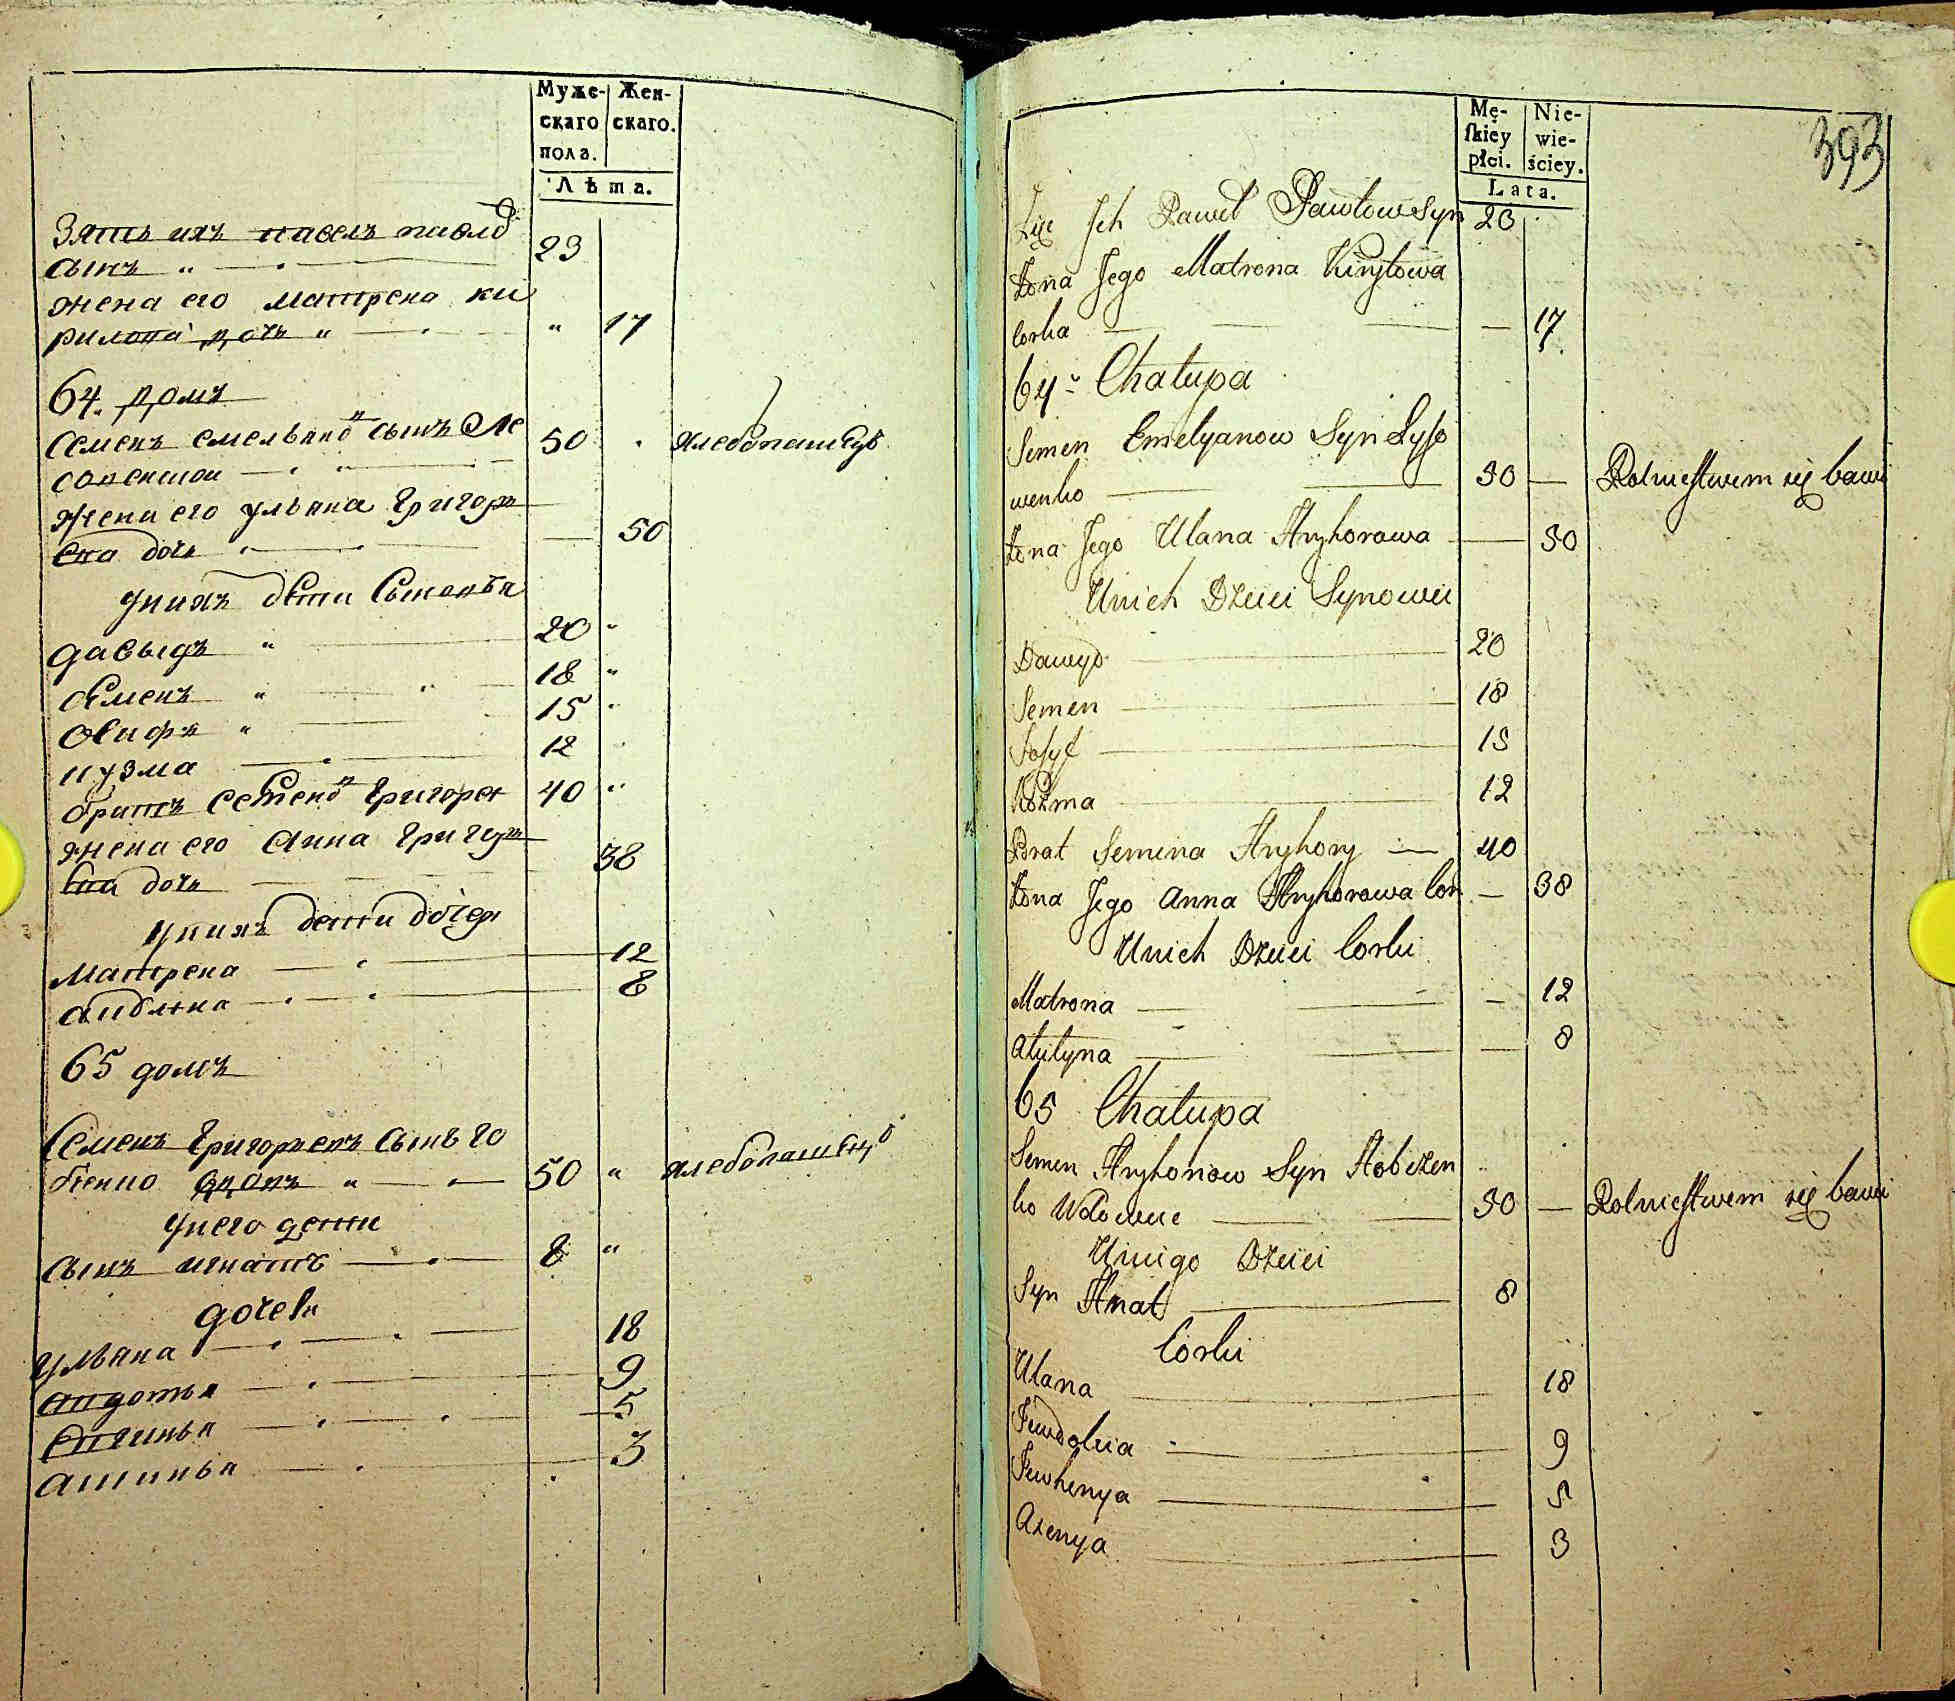 Муже-
скаго
пола.
Жен-
скаго.
Лѣта.
Зять ихъ павелъ павло
сынъ 23
жена его матрена ки
рилова дочь 17
64. домъ
Семенъ емельяно въ сынъ Ле
совенкои 50 хлебопашецъ
жена его ульяна Григорь
ева дочь 50
у нихъ дети Сыновья
давыдъ 20
Семенъ 18
Осифъ 15
кузма 12
братъ Семеновъ Григорей 40
жена его Анна Григорь
ева дочь 38
у нихъ дети дочери
матрена 12
акблина 8
65 домъ
Семенъ Григорьевъ сынъ Го
бенко вдовъ 50 хлебопашецъ
у него дети
сынъ игнатъ 8
дочери
ульяна 18
авдотья 9
Евгинья 5
аксинья 3
Mę-
skiey
płci.
Nie-
wie-
ściey.
Lata.
393
Zięć Jch Paweł Pawłow Syn 23
Żona Jego Matrona Kiryłowa
Corka — 17
64 Chałupa
Semen Emelyanow Syn Łyso
wenko 50 — Rolnictwem się bawi
Żona Jego Ulana Hryhorowa — 50
U nich Dzieci Synowie
Dawyd 20
Semen 18
Josyf 15
Kożma 12
Brat Semena Hryhory 40
Żona Jego Anna Hryhorowa Cor — 38
U nich Dzieci Corki
Matrona — 12
Akulyna — 8
65 Chałupa
Semen Hryhorow Syn Hobizen
ko Wdowiec 50 — Rolnictwem się bawi
U niego Dzieci
Syn Hnat 8
Corki
Ulana 18
Jewdokia 9
Jewhenya 5
Axenya 3